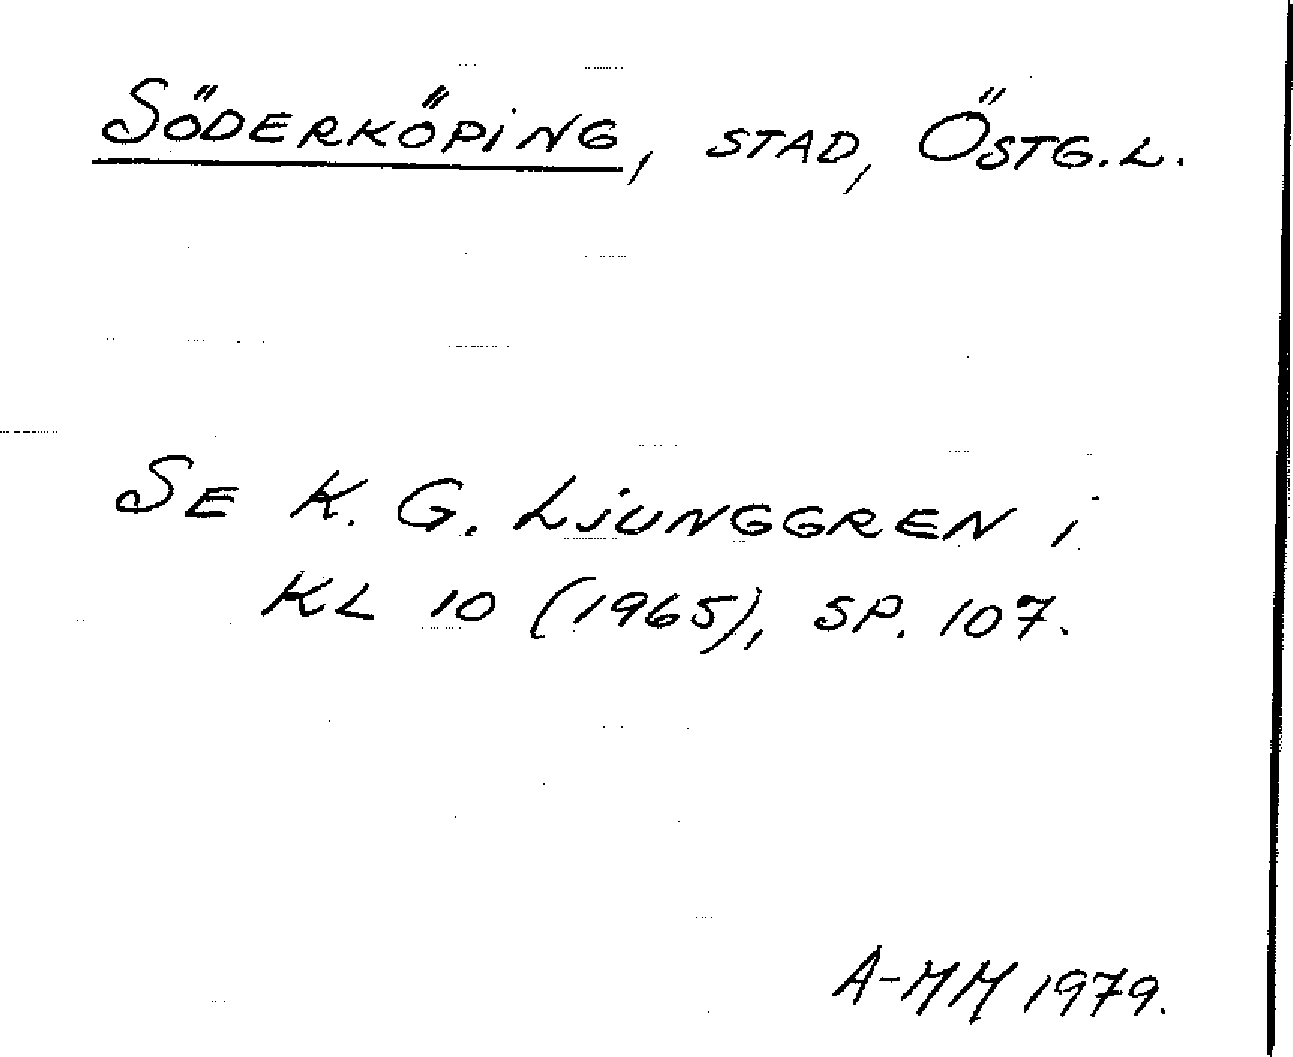 SÖDERKÖPING, STAD, ÖSTG.L.
SE K. G. LJUNGGREN i
KL 10 (1965), SP. 107.
A-MM 1979.